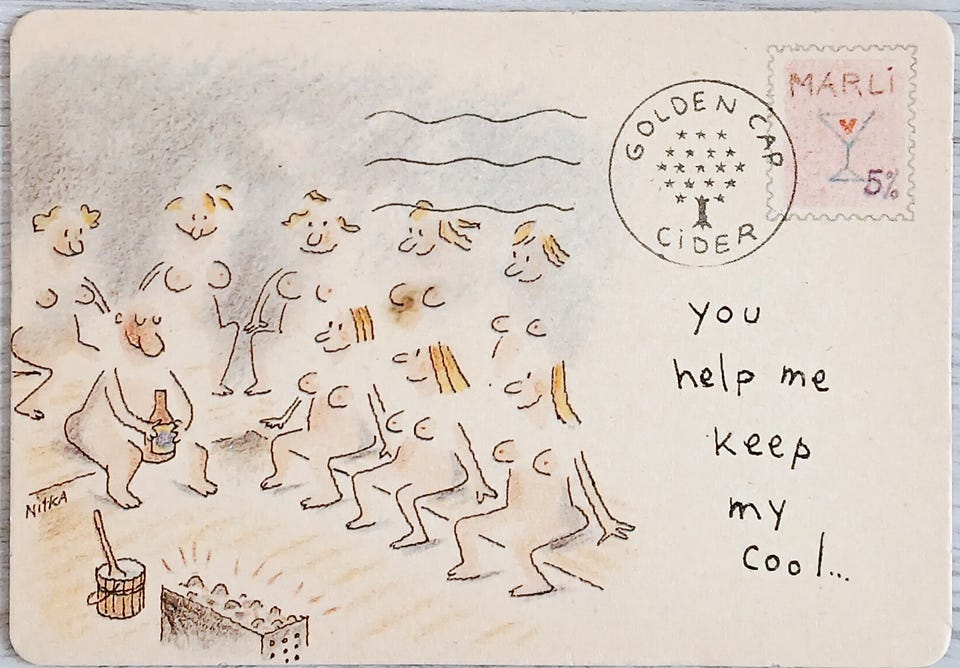 MARLi
GOLDEN CAP
5%
CiDER
you
help me
keep
my
cool...
NitKA